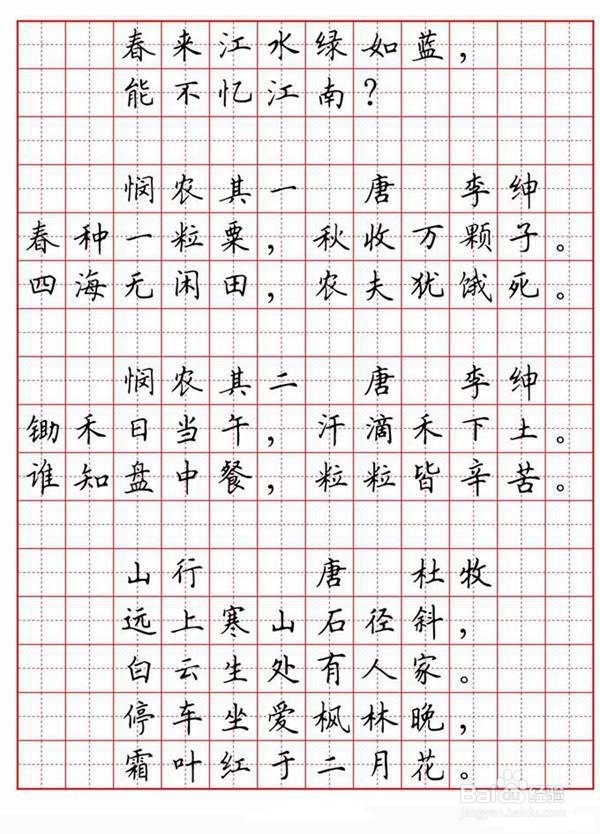 春来江水绿如蓝，
能不忆江南？
悯农其一 唐 李绅
春种一粒粟，秋收万颗子。
四海无闲田，农夫犹饿死。
悯农其二 唐 李绅
锄禾日当午，汗滴禾下土。
谁知盘中餐，粒粒皆辛苦。
山行 唐 杜牧
远上寒山石径斜，
白云生处有人家。
停车坐爱枫林晚，
霜叶红于二月花。
Baidu经验
jingyan.baidu.com